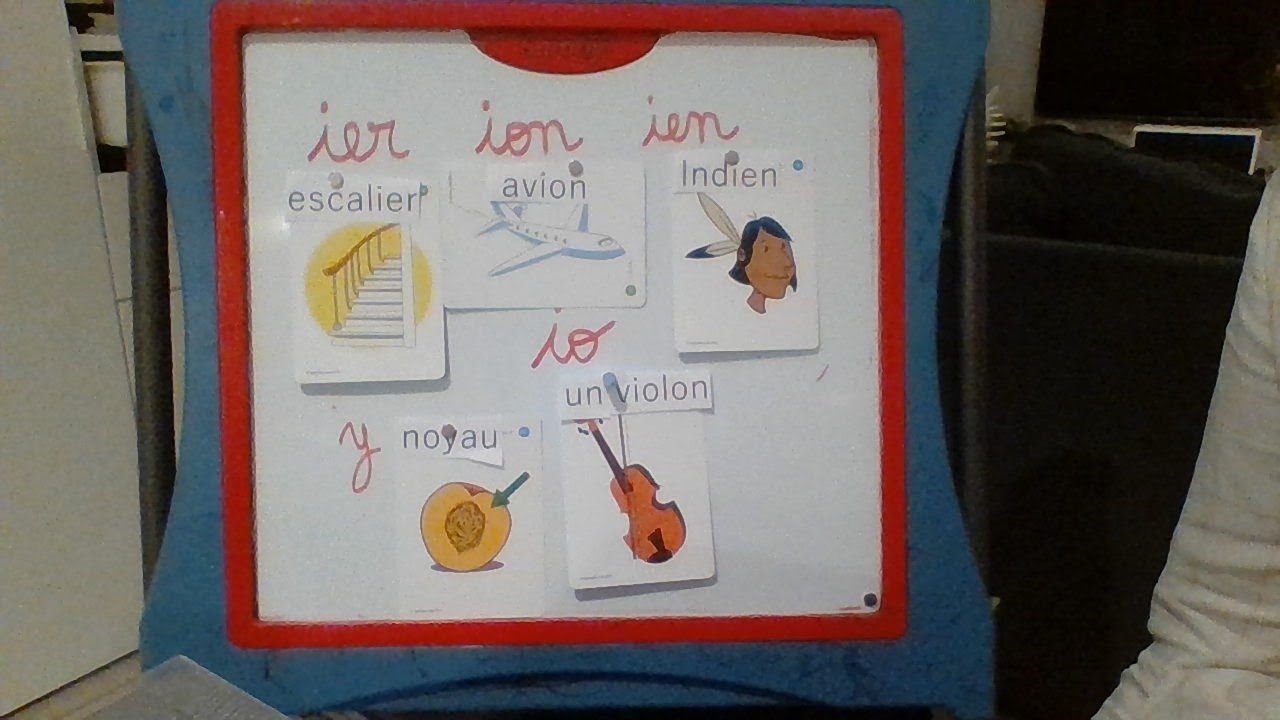 ier ion ien
escalier avion Indien
io
un violon
y noyau